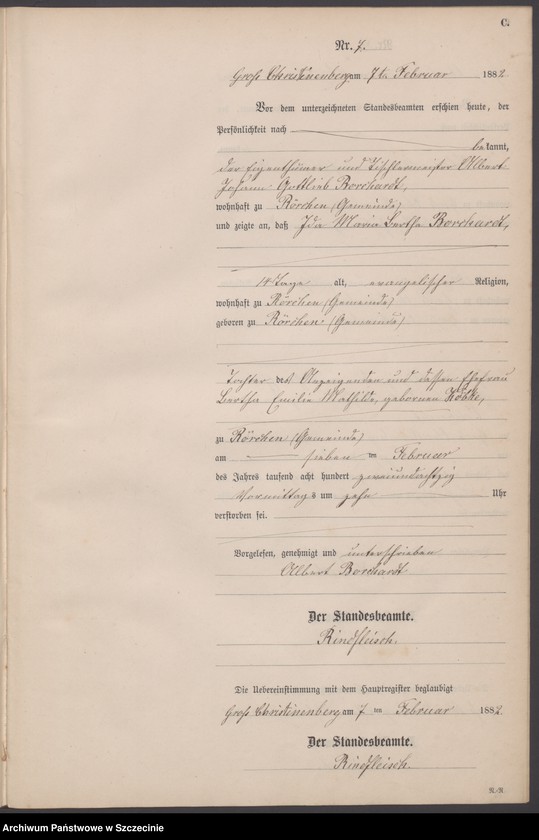 C.
Nr. 7.
Groß Christinenberg am 7t. Februar 1882
Vor dem unterzeichneten Standesbeamten erschien heute, der
Persönlichkeit nach
bekannt,
der Eigenthümer und Tischlermeister Albert
Johann Gottlieb Borchardt,
wohnhaft zu Rörchen (Gemeinde)
und zeigte an, daß Ida Maria Bertha Borchardt,
14 Tage alt, evangelischer Religion,
wohnhaft zu Rörchen (Gemeinde)
geboren zu Rörchen (Gemeinde)
Tochter des Anzeigenden und dessen Ehefrau
Bertha Emilie Mathilde, gebornen
zu Rörchen (Gemeinde)
am sieben ten Februar
des Jahres tausend acht hundert zweiundachtzig
Vormittags um zehn Uhr
verstorben sei.
Vorgelesen, genehmigt und unterschrieben
Albert Borchardt
Der Standesbeamte.
Rindfleisch.
Die Uebereinstimmung mit dem Hauptregister beglaubigt
Groß Christinenberg am 7 ten Februar 1882
Der Standesbeamte.
Rindfleisch.
Archiwum Państwowe w Szczecinie